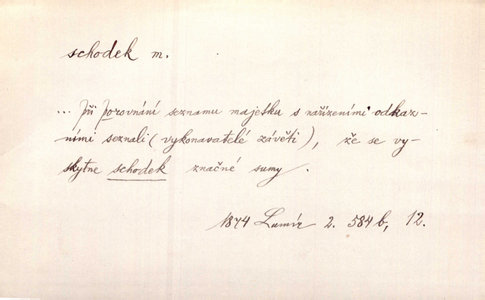 schodek m.
... při porovnání seznamu majetku s nařízeními odkaz-
ními seznali (vykonavatelé závěti), že se vy-
skytne schodek značné sumy.
1874 Lumír 2. 584 b, 12.